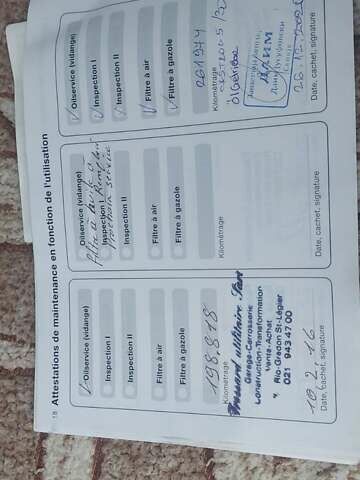 18
Attestations de maintenance en fonction de l'utilisation
Oilservice (vidange)
Inspection I
Inspection II
Filtre à air
Filtre à gazole
198.818
Kilométrage
Garage-Carrosserie
Construction-Transformation
Vente-Achat
Rio-Gredon St-Légier
021 943 47 00
10.2.16
Date, cachet, signature
Oilservice (vidange)
Filtre à huile a
Inspection I
Prochain service
Inspection II
Filtre à air
Filtre à gazole
Kilométrage
Date, cachet, signature
Oilservice (vidange)
Inspection I
Inspection II
Filtre à air
Filtre à gazole
261944
Kilométrage
Date, cachet, signature